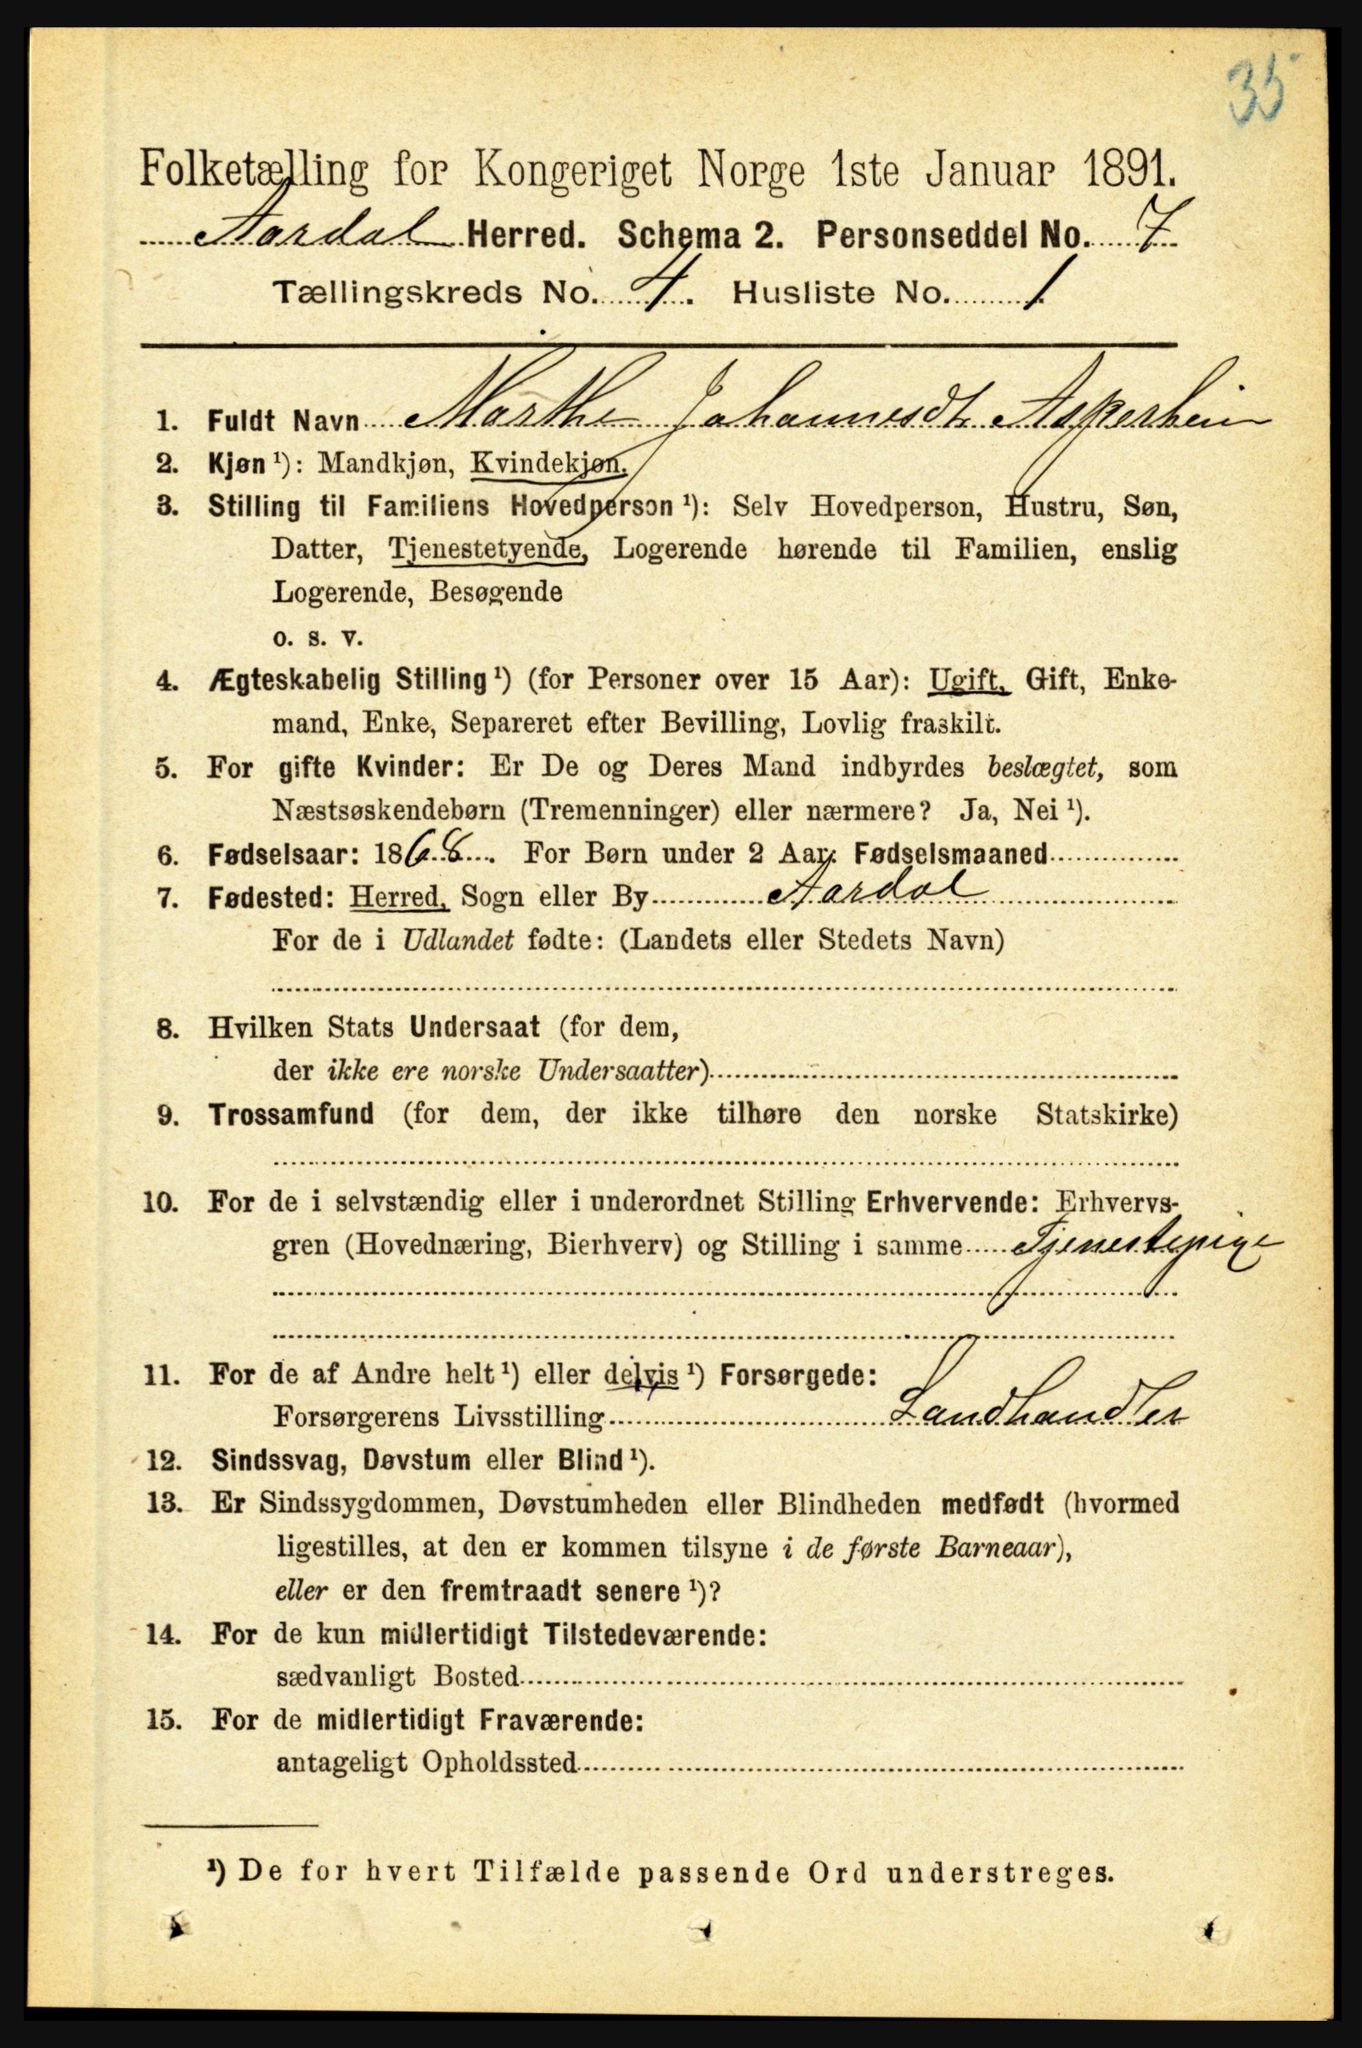 35
Folketælling for Kongeriget Norge 1ste Januar 1891.
Aardal Herred. Schema 2. Personseddel No. 7
Tællingskreds No. 4. Husliste No. 1
1. Fuldt Navn Marthe Johannesdt. Asperhein
2. Kjøn ¹): Mandkjøn, Kvindekjøn.
3. Stilling til Familiens Hovedperson ¹): Selv Hovedperson, Hustru, Søn,
Datter, Tjenestetyende, Logerende hørende til Familien, enslig
Logerende, Besøgende
o. s. v.
4. Ægteskabelig Stilling ¹) (for Personer over 15 Aar): Ugift, Gift, Enke-
mand, Enke, Separeret efter Bevilling, Lovlig fraskilt.
5. For gifte Kvinder: Er De og Deres Mand indbyrdes beslægtet, som
Næstsøskendebørn (Tremenninger) eller nærmere? Ja, Nei ¹).
6. Fødselsaar: 1868. For Børn under 2 Aar: Fødselsmaaned
7. Fødested: Herred, Sogn eller By Aardal
For de i Udlandet fødte: (Landets eller Stedets Navn)
8. Hvilken Stats Undersaat (for dem,
der ikke ere norske Undersaatter)
9. Trossamfund (for dem, der ikke tilhøre den norske Statskirke)
10. For de i selvstændig eller i underordnet Stilling Erhvervende: Erhvervs-
gren (Hovednæring, Bierhverv) og Stilling i samme Tjenestepige
11. For de af Andre helt ¹) eller delvis ¹) Forsørgede:
Forsørgerens Livsstilling Landhandler
12. Sindssvag, Døvstum eller Blind ¹).
13. Er Sindssygdommen, Døvstumheden eller Blindheden medfødt (hvormed
ligestilles, at den er kommen tilsyne i de første Barneaar),
eller er den fremtraadt senere ¹)?
14. For de kun midlertidigt Tilstedeværende:
sædvanligt Bosted
15. For de midlertidigt Fraværende:
antageligt Opholdssted
¹) De for hvert Tilfælde passende Ord understreges.